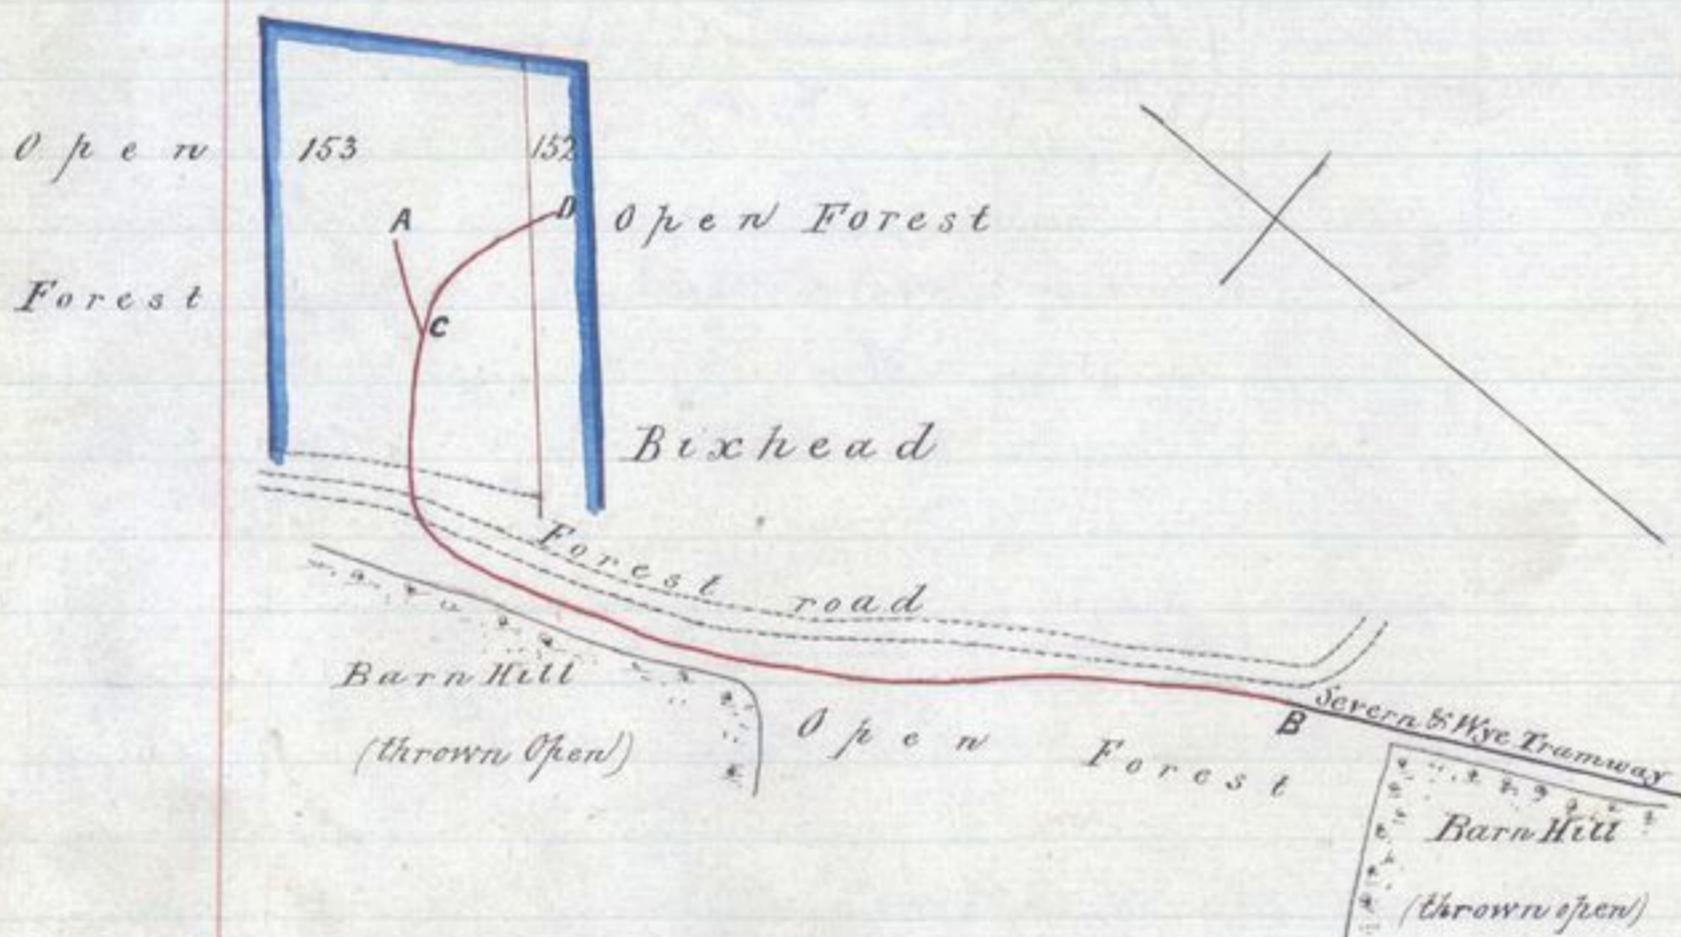 Open
Forest
153
152
A
D
C
Open Forest
Bixhead
Forest road
Barn Hill
(thrown Open)
Open Forest
B
Severn & Wye Tramway
Barn Hill
(thrown open)